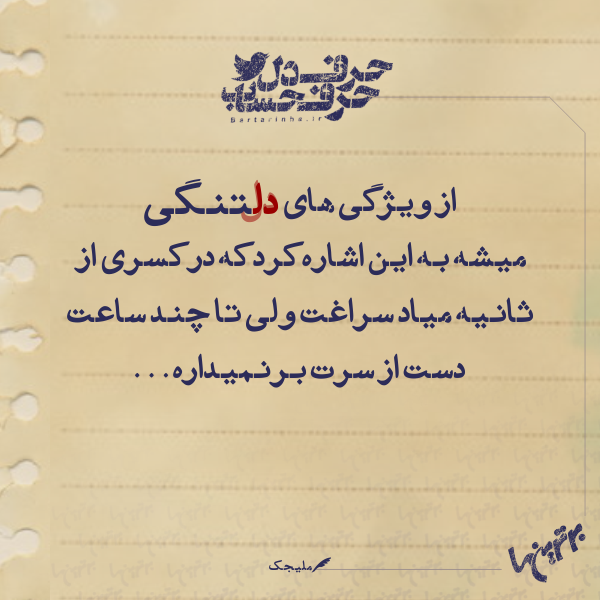 حرف دل
حرف حساب
Bartarinha.ir
از ویژگی های دلتنگی
میشه به این اشاره کرد که در کسری از
ثانیه میاد سراغت ولی تا چند ساعت
دست از سرت بر نمیداره...
ملیجک
برترین ها